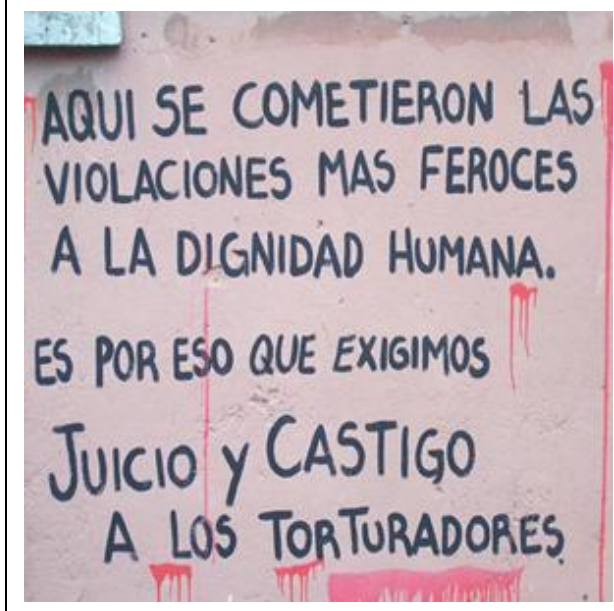 AQUI SE COMETIERON LAS
VIOLACIONES MAS FEROCES
A LA DIGNIDAD HUMANA.
ES POR ESO QUE EXIGIMOS
JUICIO y CASTIGO
A LOS TORTURADORES